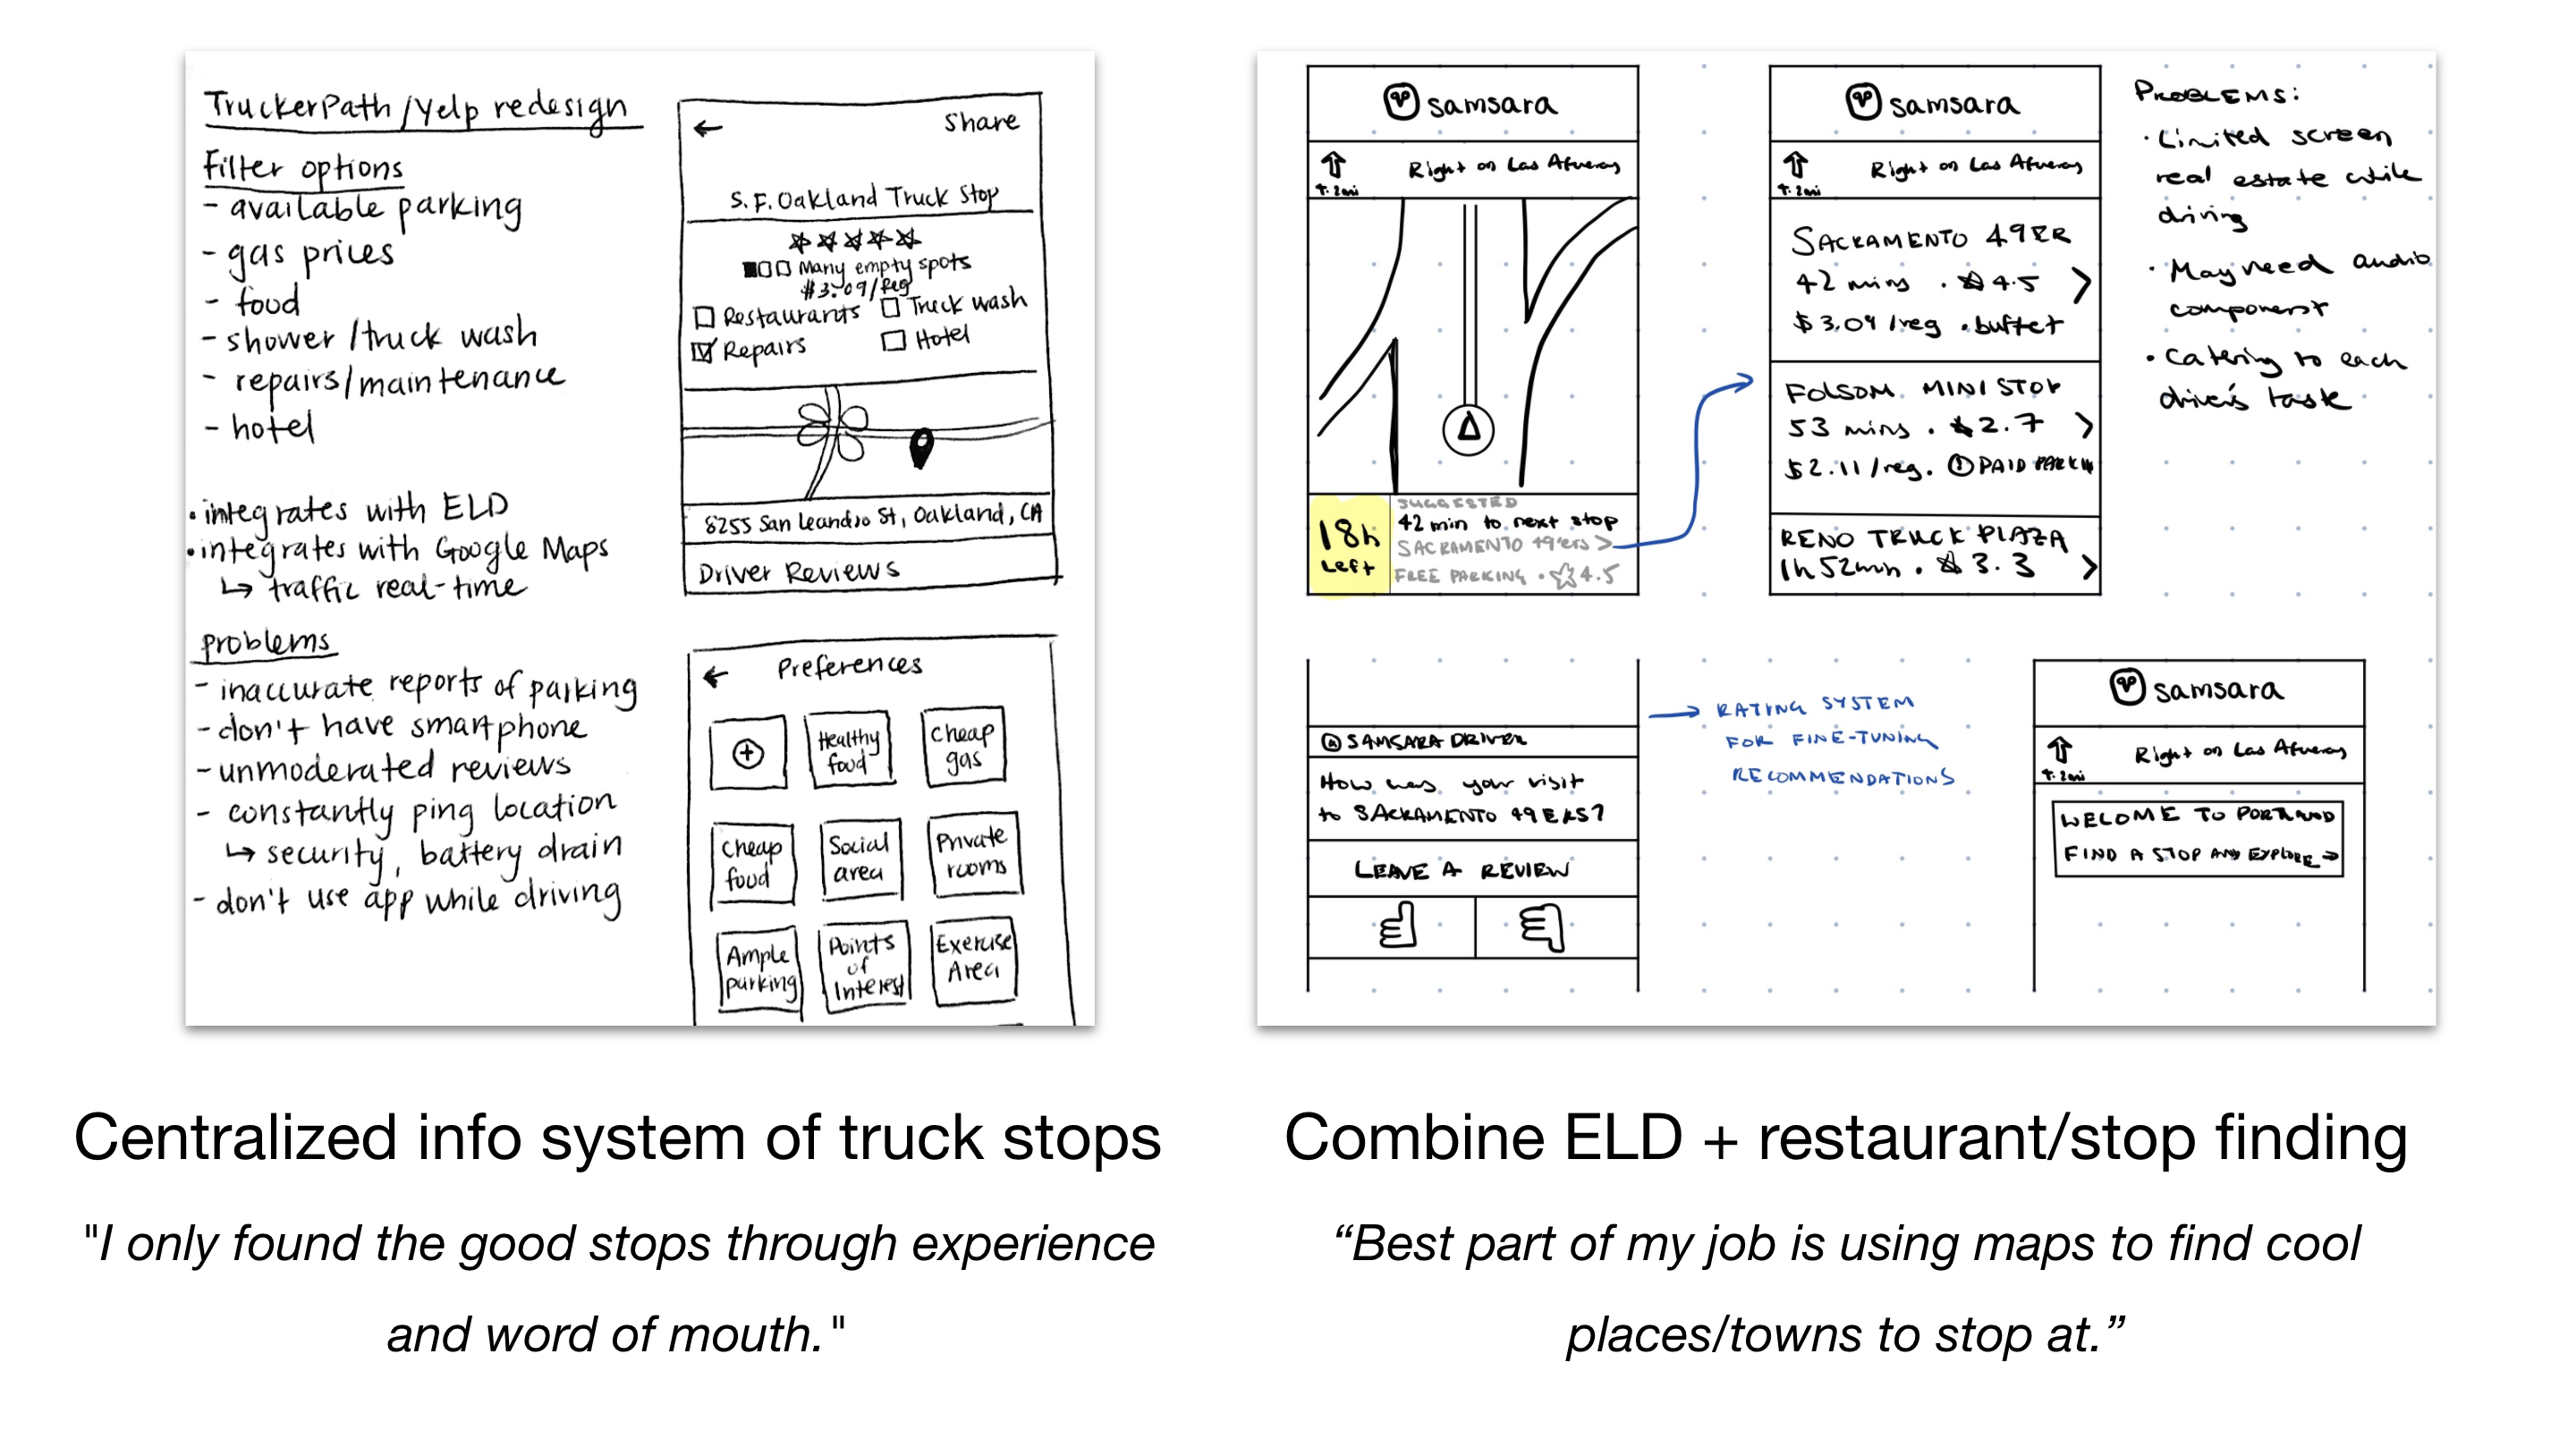 TruckerPath/Yelp redesign
Filter options
- available parking
- gas prices
- food
- shower/truck wash
- repairs/maintenance
- hotel
• integrates with ELD
• integrates with Google Maps
↳ traffic real-time
problems
- inaccurate reports of parking
- don't have smartphone
- unmoderated reviews
- constantly ping location
↳ security, battery drain
- don't use app while driving
← Share
S.F. Oakland Truck Stop
Many empty spots
$3.09/Reg
Restaurants Truck wash
Repairs Hotel
8255 San Leandro St, Oakland, CA
Driver Reviews
← Preferences
Healthy food
Cheap gas
Cheap food
Social area
Private rooms
Ample parking
Points of Interest
Exercise Area
samsara
Right on Las Afueras
SUGGESTED
18h left
42 min to next stop
SACRAMENTO 49'ers >
FREE PARKING • ☆4.5
samsara
Right on Las Afueras
SACRAMENTO 49ER
42 mins . ☆4.5 >
$3.09/reg . buffet
FOLSOM MINI STOP
53 mins . ☆2.7 >
$2.11/reg. PAID
RENO TRUCK PLAZA
1h 52min . ☆3.3 >
PROBLEMS:
• Limited screen
real estate while
driving
• May need audio
component
• Catering to each
driver's taste
SAMSARA DRIVER
How was your visit
to SACRAMENTO 49ERS?
LEAVE A REVIEW
→ RATING SYSTEM
FOR FINE-TUNING
RECOMMENDATIONS
samsara
Right on Las Afueras
WELOME TO PORTLAND
FIND A STOP AND EXPLORE →
Centralized info system of truck stops
"I only found the good stops through experience
and word of mouth."
Combine ELD + restaurant/stop finding
“Best part of my job is using maps to find cool
places/towns to stop at.”